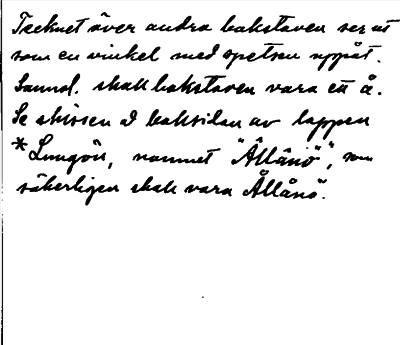 Tecknet över andra bokstaven ser ut
som en vinkel med spetsen uppåt.
Sannol. skall bokstaven vara ett å.
Se skissen å baksidan av lappen
*Lungön, namnet "Ållânö", som
säkerligen skall vara Ållånö.